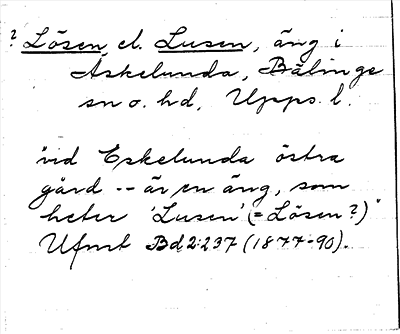 ? Lösen, el. Lusen, äng i
Askelunda, Bälinge
sn o. hd, Upps. l.
"vid Eskelunda östra
gård -- är en äng, som
heter 'Lusen' (= Lösen?)"
Ufmt Bd 2:237 (1877-90).